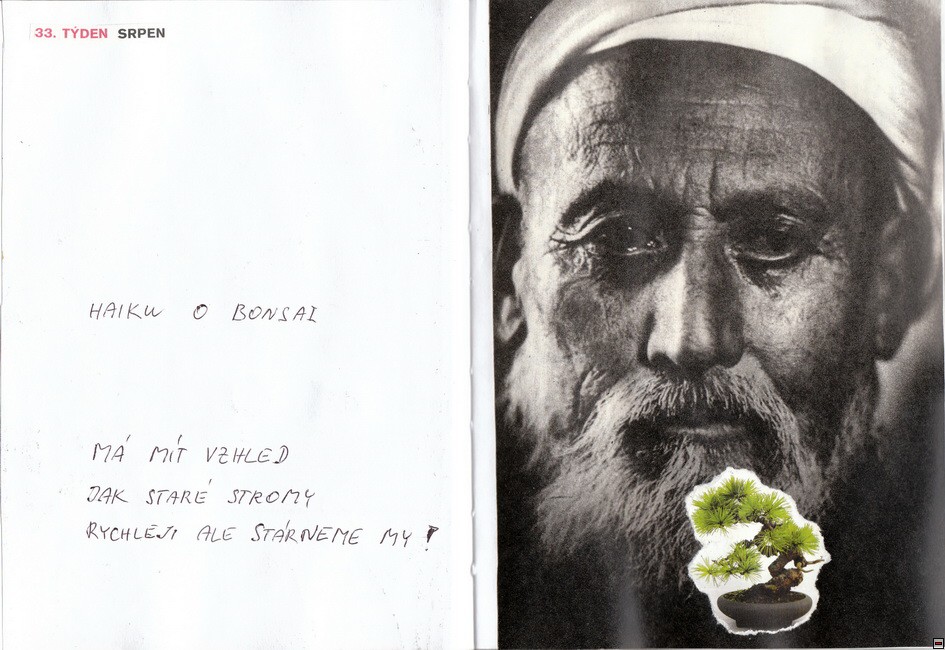 33. TÝDEN SRPEN
HAIKU O BONSAI
MÁ MÍT VZHLED
JAK STARÉ STROMY
RYCHLEJI ALE STÁRNEME MY!